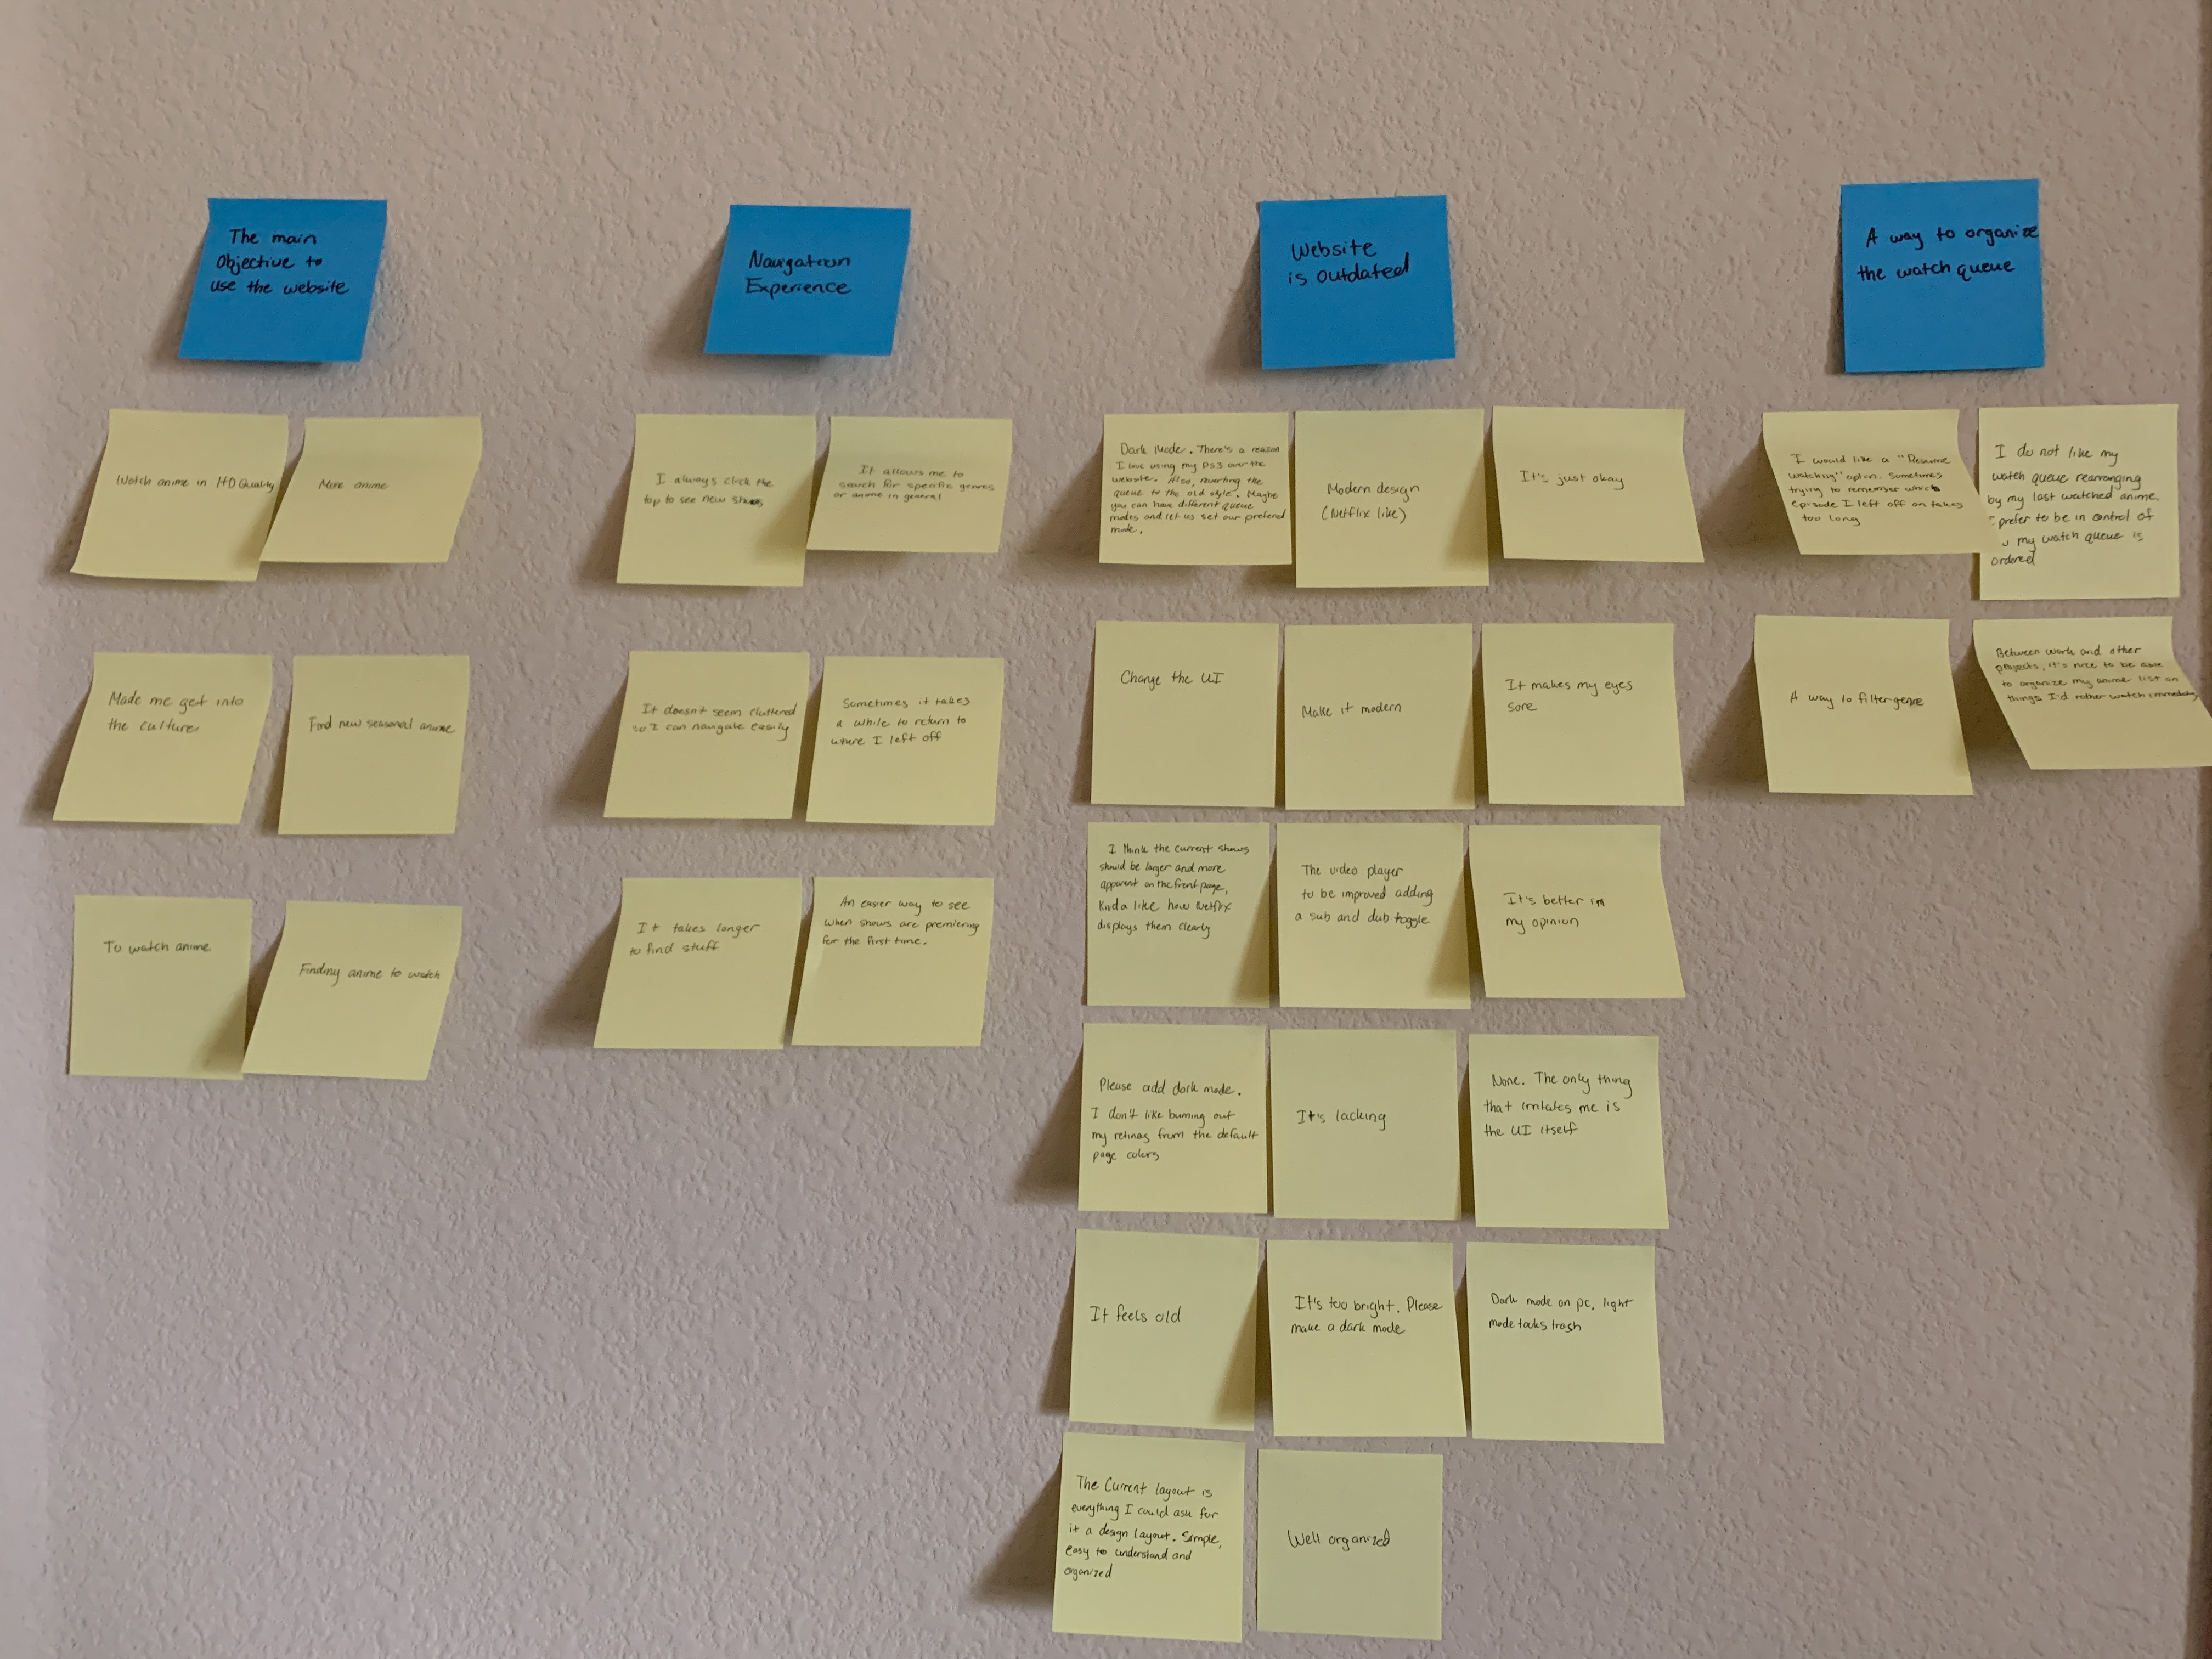 The main
Objective to
use the website
Watch anime in HD Quality
More anime
Made me get into
the culture
Find new seasonal anime
To watch anime
Finding anime to watch
Navigation
Experience
I always click the
top to see new shows
It allows me to
search for specific genres
or anime in general
It doesn't seem cluttered
so I can navigate easily
Sometimes it takes
a while to return to
where I left off
It takes longer
to find stuff
An easier way to see
when shows are premiering
for the first time.
Website
is outdated
Dark Mode. There's a reason
I love using my PS3 over the
website. Also, reverting the
queue to the old style. Maybe
you can have different queue
modes and let us set our prefered
mode.
Modern design
(Netflix like)
It's just okay
Change the UI
Make it modern
It makes my eyes
sore
I think the current shows
should be larger and more
apparent on the front page,
Kinda like how Netflix
displays them clearly
The video player
to be improved adding
a sub and dub toggle
It's better in
my opinion
Please add dark mode.
I don't like burning out
my retinas from the default
page colors
It's lacking
None. The only thing
that irritates me is
the UI itself
It feels old
It's too bright. Please
make a dark mode
Dark mode on pc, light
mode looks trash
The Current layout is
everything I could ask for
it a design layout. Simple,
easy to understand and
organized
Well organized
A way to organize
the watch queue
I would like a "Resume
watching" option. Sometimes
trying to remember which
episode I left off on takes
too long
I do not like my
watch queue rearranging
by my last watched anime.
prefer to be in control of
my watch queue is
ordered
A way to filter genre
Between work and other
projects, it's nice to be able
to organize my anime list on
things I'd rather watch immediately